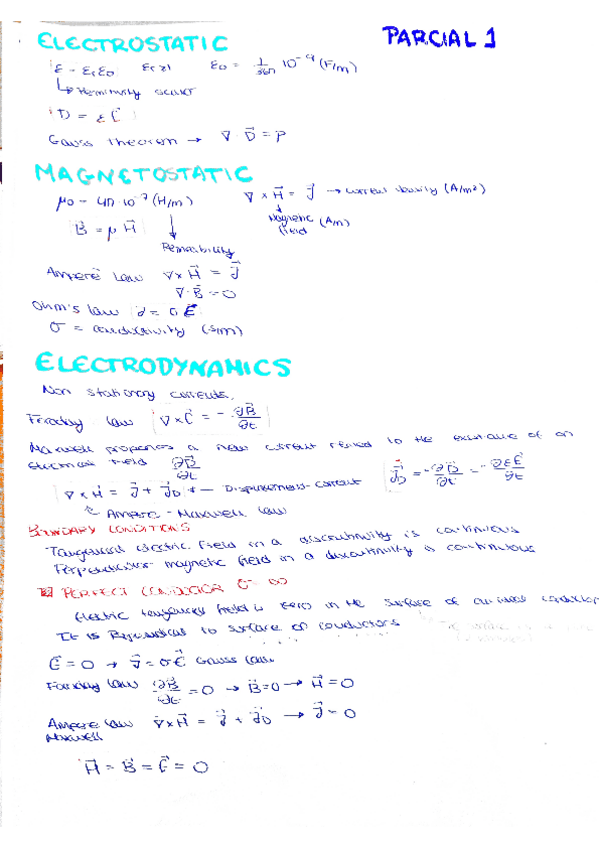 PARCIAL 1
ELECTROSTATIC
ε = εrε0   εr≥1   ε0 = 1/36π 10^-9 (F/m)
↳ Permitivity scalar
D = εE
Gauss theorem → ∇ D = ρ
MAGNETOSTATIC
μ0 = 4π·10^-7 (H/m)   ∇ × H = J → current density (A/m²)
B = μ H   Magnetic field (A/m)
Permeability
Ampere law ∇× H = J
∇·B = 0
Ohm's law J = σ E
σ = conductivity (S/m)
ELECTRODYNAMICS
Non stationary currents.
Faraday law ∇ × E = - ∂B/∂t
Maxwell proposes a new current related to the existance of an
electrical field ∂D/∂t   JD = -∂D/∂t = -∂εE/∂t
∇ × H = J + JD ← Displacement-current
Ampere - Maxwell law
BOUNDARY CONDITIONS
Tangential electric field in a discontinuity is continuous
Perpendicular magnetic field in a discontinuity is continuous
PERFECT CONDUCTOR σ = ∞
Electric tangencial field is zero in the surface of an ideal conductor
It is to surface of conductors
E = 0 → J = σE Gauss law
Faraday law ∂B/∂t = 0 → B=0 → H = 0
Ampere law ∇ × H = J + JD → J = 0
Maxwell
H = B = E = 0